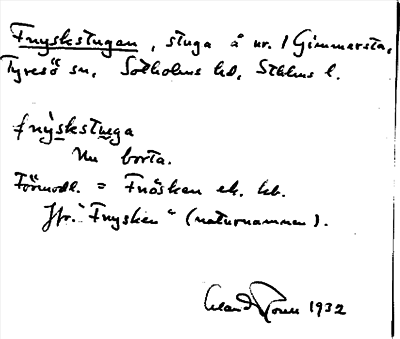 Fnyskstugan, stuga å nr. 1 Gimmersta,
Tyresö sn, Sotholms hd, Sthlms l.
fnỳskstuga
Nu borta.
Förmodl. = Fnösken ek. kb.
Jfr. "Fnysken" (naturnamnen).
1932